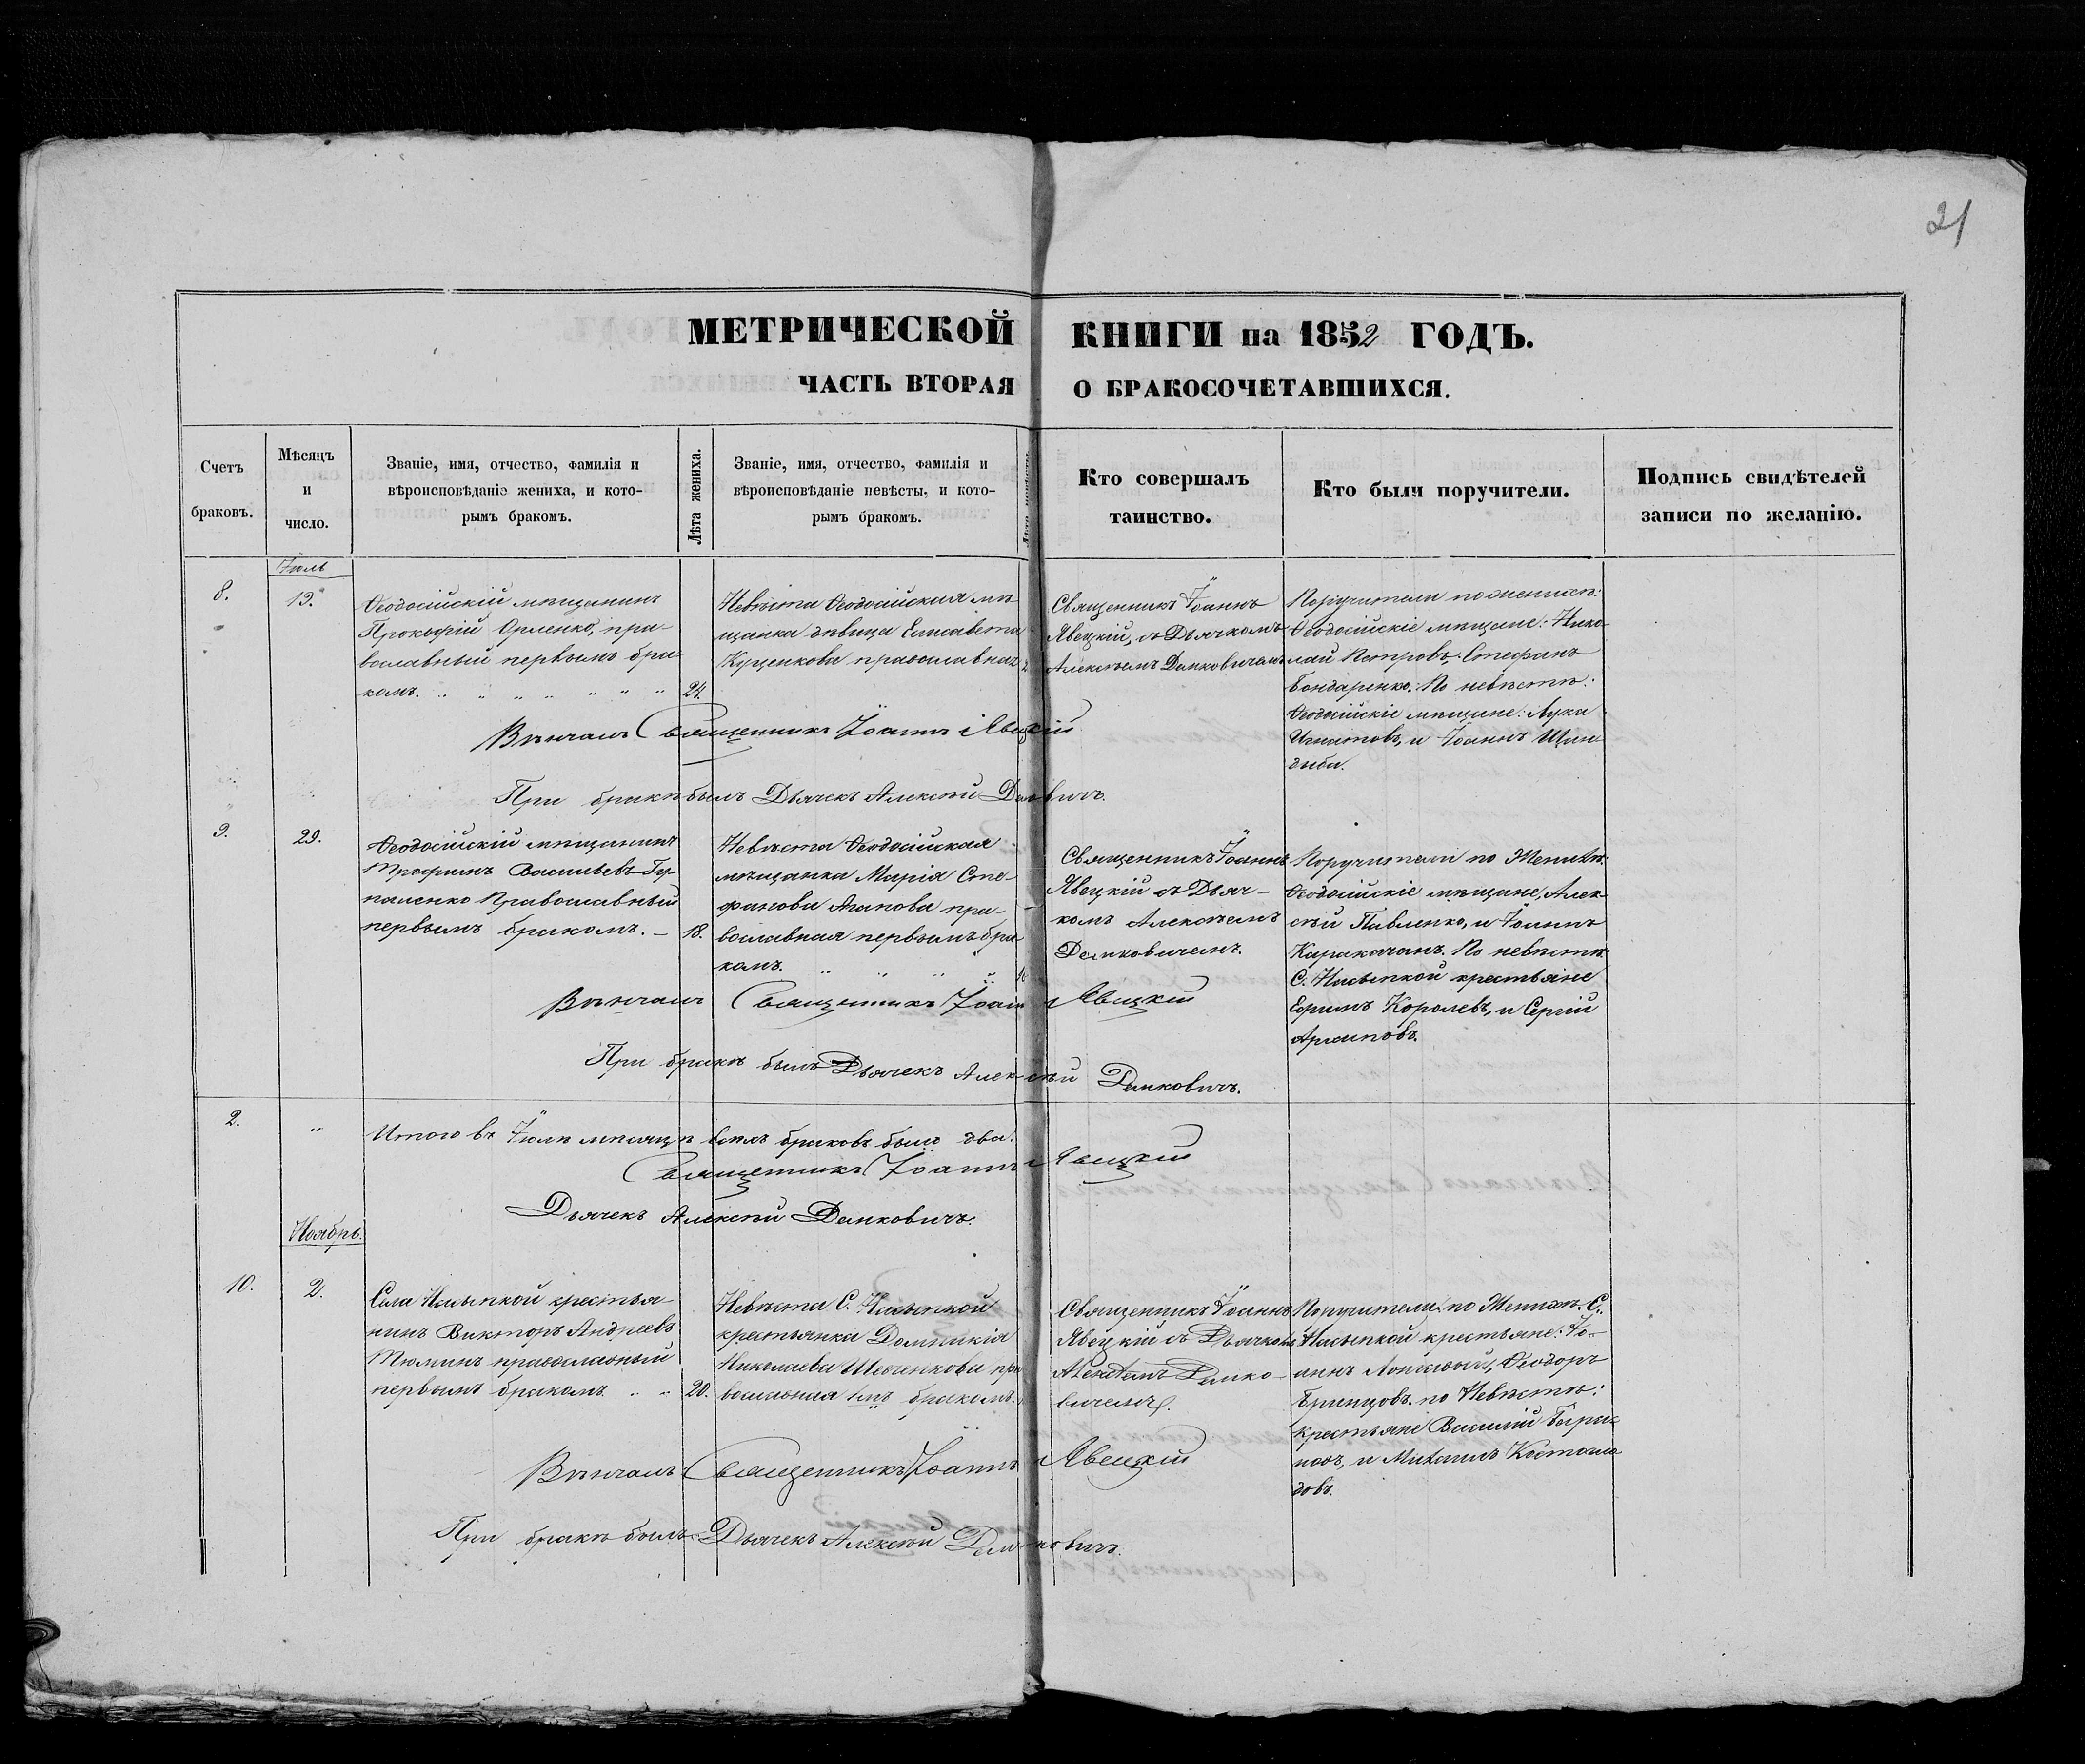 21
МЕТРИЧЕСКОЙ КНИГИ на 1852 ГОДЪ.
ЧАСТЬ ВТОРАЯ О БРАКОСОЧЕТАВШИХСЯ.
Счетъ браковъ.
Мѣсяцъ и число.
Званіе, имя, отчество, фамилія и
вѣроисповѣданіе жениха, и кото-
рымъ бракомъ.
Лѣта жениха.
Званіе, имя, отчество, фамилія и
вѣроисповѣданіе невѣсты, и кото-
рымъ бракомъ.
Лѣта невѣсты.
Кто совершалъ
таинство.
Кто были поручители.
Подпись свидѣтелей
записи по желанію.
Іюль
8.
13.
Ѳеодосійскій мѣщанинъ
Прокофій Орленко, пра-
вославный первымъ бра-
комъ.
24.
Невѣста Ѳеодосійская мѣ-
щанка дѣвица Елисавета
Куценкова православная
Священникъ Іоаннъ
Явецкій, съ Дьячкомъ
Алексѣемъ Демковичемъ
Поручители по женихѣ:
Ѳеодосійскіе мѣщане: Нико-
лай Петровъ, Стефанъ
Бондаренко. По невѣстѣ:
Ѳеодосійскіе мѣщане: Лука
Игнатовъ, и Іоаннъ
дыба.
Вѣнчалъ Священникъ Іоаннъ Явецкій
При бракѣ былъ Дьячекъ Алексѣй Демковичъ.
9.
29.
Ѳеодосійскій мѣщанинъ
Трофимъ Васильевъ Гу-
паленко Православный
первымъ бракомъ. –
18.
Невѣста Ѳеодосійская
мѣщанка Марія Сте-
фанова Агапова пра-
вославная первымъ бра-
комъ.
Священникъ Іоаннъ
Явецкій съ Дьяч-
комъ Алексѣемъ
Демковичемъ.
Поручители по Женихѣ:
Ѳеодосійскіе мѣщане, Алек-
сѣй Павленко, и Іоаннъ
Каракачанъ. По невѣстѣ:
С. Насыпкой крестьяне
Ефимъ Королевъ, и Сергій
Вѣнчалъ Священникъ Іоаннъ Явецкій
При бракѣ былъ Дьячекъ Алексѣй Демковичъ.
2.
"
Итого въ Іюлѣ мѣсяцѣ всѣхъ браковъ было два.
Священникъ Іоаннъ Явецкій
Дьячекъ Алексѣй Демковичъ.
Ноябрь.
10.
2.
Села Насыпкой крестья-
нинъ Викторъ Андреевъ
Тюминъ православный
первымъ бракомъ
20.
Невѣста С. Насыпкой
крестьянка Домникія
Николаева Шевченкова пра-
вославная 1мъ бракомъ.
Священникъ Іоаннъ
Явецкій съ Дьячкомъ
Алексѣемъ Демко-
вичемъ.
Поручители: по Женихѣ. С.
Насыпкой крестьяне: Іо-
аннъ Ѳеодоръ
по Невѣстѣ:
крестьяне Василій
и Михаилъ
довъ.
Вѣнчалъ Священникъ Іоаннъ Явецкій
При бракѣ былъ Дьячекъ Алексѣй Демковичъ.